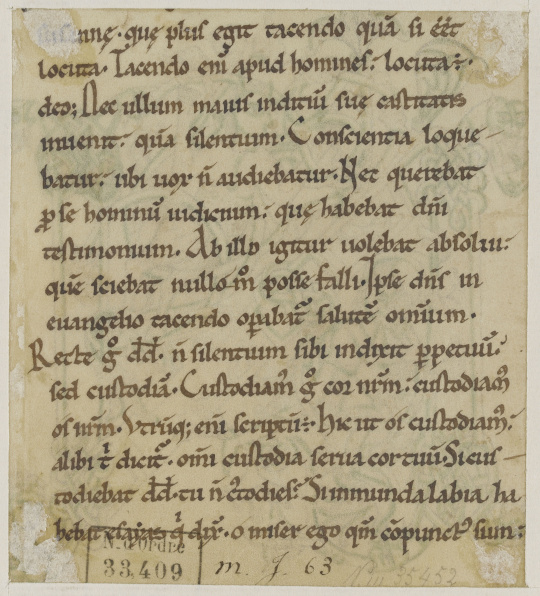 nnę. quę plus egit tacendo quā si eēt
locuta. Tacendo enī apud homines: locuta ÷
deo; Nec ullum maius inditiū suę castitatis
inuenit: quā silentium. Conscientia loque-
batur: ubi uox n̄ audiebatur. Nec querebat
ꝑ se hominū iudicium: quę habebat dn̄i
testimonium. Ab illo igitur uolebat absolui:
quē sciebat nullo m̊ posse falli. Ipse dn̄s in
euangelio tacendo oꝑabat᷑ salutē omīum.
Recte g̊ dd̄. n̄ silentium sibi indixit ꝑpetuū:
sed custodiā. Custodiam᷒ g̊ cor nr̄m: custodiam᷒
os nr̄m. Vtrūq; enī scriptū ÷. Hic ut os custodiam᷒:
alibi t̄ dicit᷑. omī custodia serua cor tuū. Si cus-
todiebat dd̄. tu n̄ c᷒todies? Si inmunda labia ha
bebat esaias qi dix̄. o miser ego qm̄ cōpunct᷒ sum:
N. d'Ordre
33.409
m. J. 63